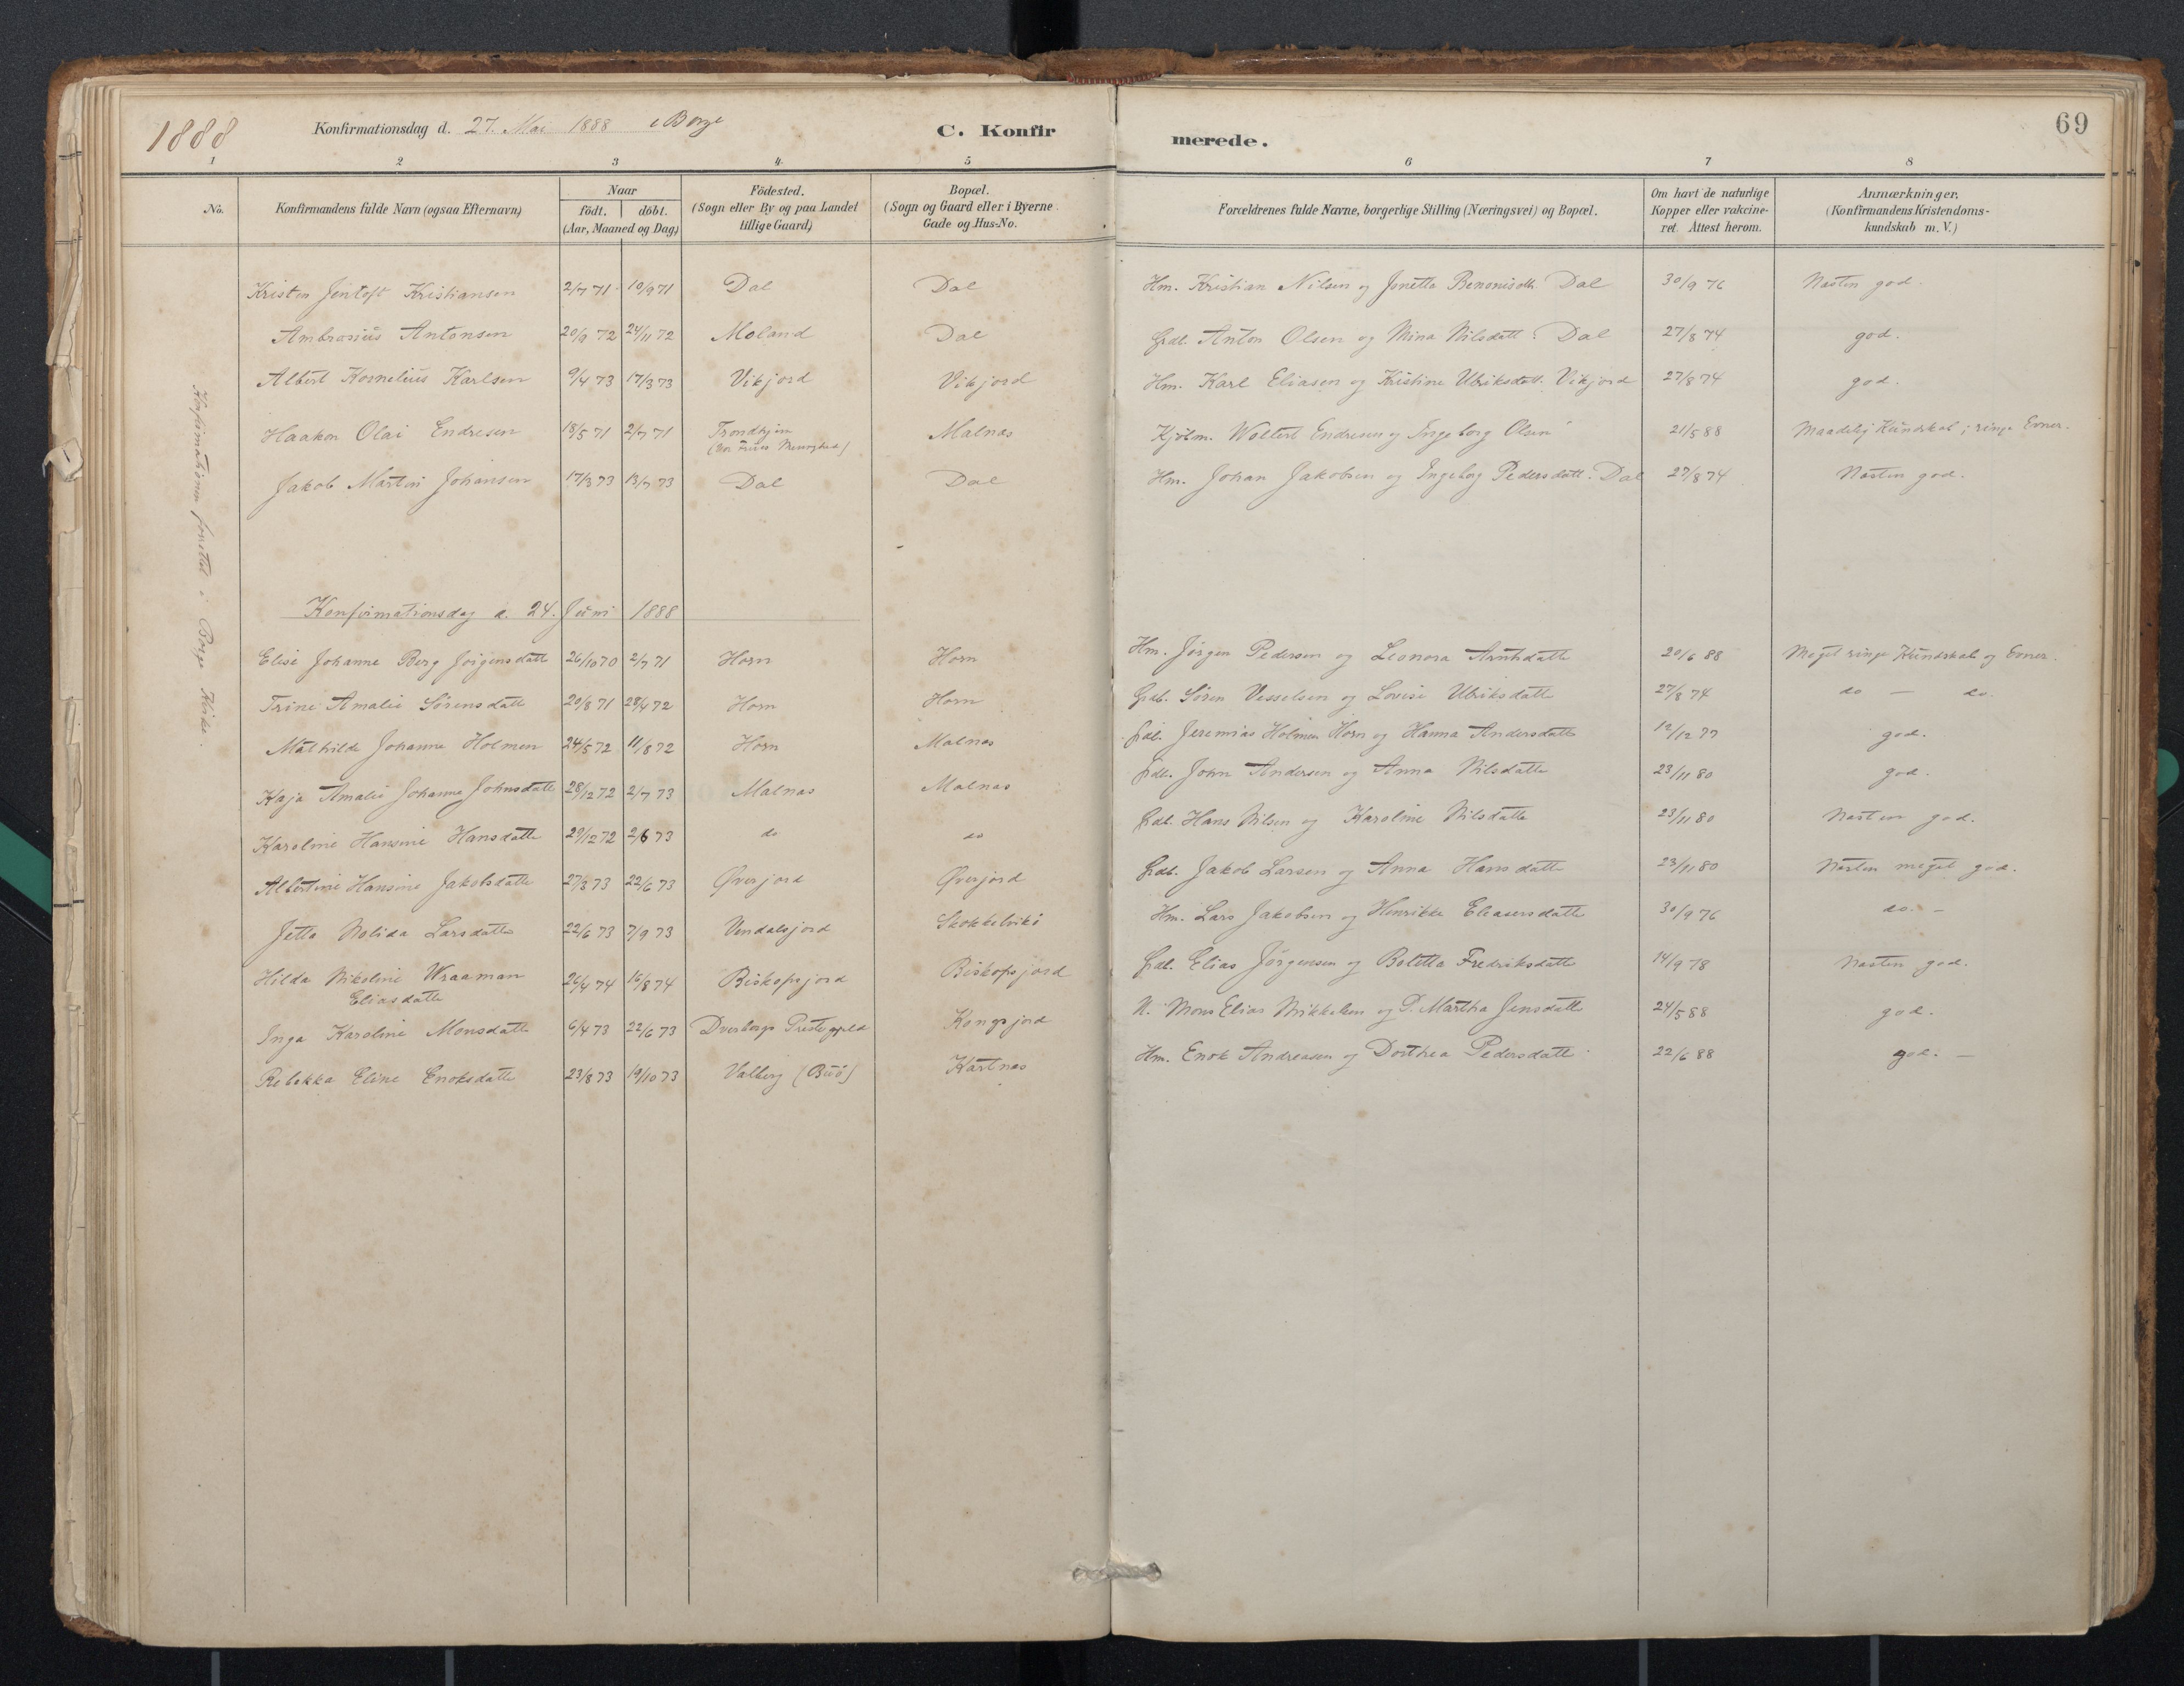 1888
Konfirmationsdag d. 27. Mai 1888 i Borge
C. Konfirmerede.
69
1 2 3 4 5 6 7 8
No.
Konfirmandens fulde Navn (ogsaa Efternavn)
Naar
födt. döbt.
(Aar, Maaned og Dag.)
Födested.
(Sogn eller By og paa Landet
tillige Gaard)
Bopæl.
(Sogn og Gaard eller i Byerne
Gade og Hus-No.
Forældrenes fulde Navne, borgerlige Stilling (Næringsvei) og Bopæl.
Om havt de naturlige
Kopper eller vakcine-
ret. Attest herom.
Anmærkninger.
(Konfirmandens Kristendoms-
kundskab m. V.)
Konfirmationen forrettet i Borge Kirke.
Kristen Jentoft Kristiansen 2/7 71 10/9 71 Dal Dal Hm. Kristian Nilsen og Jonetta Benonisdtt. Dal 30/9 76 Næsten god.
Ambrosius Antonsen 20/9 72 24/11 72 Moland Dal Gdb. Anton Olsen og Mina Nilsdatt. Dal 27/8 74 god.
Albert Kornelius Karlsen 9/4 73 17/3 73 Vikjord Vikjord Hm. Karl Eliasen og Kristine Ulriksdatt. Vikjord 27/8 74 god.
Haakon Olai Endresen 18/5 71 2/7 71 Trondhjem Malnæs Kjöbm. Woltert Endresen og Ingeborg Olsen 21/5 88 Maadelig Kundskab; ringe Evner.
(Vor Frues Menighed)
Jakob Martin Johansen 17/3 73 13/7 73 Dal Dal Hm. Johan Jakobsen og Ingeborg Pedersdatt. Dal 27/8 74 Næsten god.
Konfirmationsdag d. 24. Juni 1888
Elise Johanne Berg Jörgensdatter 26/10 70 2/7 71 Horn Horn Hm. Jörgen Pedersen og Leonora Arntsdatter 20/6 88 Meget ringe Kundskab og Evner.
Trine Amalie Sörensdatter 20/8 71 28/4 72 Horn Horn Gdb. Sören Vesselsen og Lovise Ulriksdatter 27/8 74 do — do.
Mathilde Johanne Holmen 24/5 72 11/8 72 Horn Malnæs Gdb. Jeremias Holmen Horn og Hanna Andersdatter 12/12 77 god.
Kaja Amalie Johanne Johnsdatter 28/12 72 2/7 73 Malnæs Malnæs Gdb. John Andersen og Anna Nilsdatter 23/11 80 god.
Karoline Hansine Hansdatter 29/12 72 2/6 73 do do Gdb. Hans Nilsen og Karoline Nilsdatter 23/11 80 Næsten god.
Albertine Hansine Jakobsdatter 27/3 73 22/6 73 Øverjord Øverjord Gdb. Jakob Larsen og Anna Hansdatter 23/11 80 Næsten meget god.
Jetta Nolida Larsdatter 22/6 73 7/9 73 Vendalsjord Skokkelvik Hm. Lars Jakobsen og Henrikke Eleasersdatter 30/9 76 do. —
Hilda Nikoline Wraaman 26/4 74 16/8 74 Biskopsjord Biskopsjord Gdb. Elias Jörgensen og Boletta Fredriksdatter 14/9 78 Næsten god.
Eliasdatter
Inga Karoline Monsdatter 6/4 73 22/6 73 Dverbergs Præstegjeld Kongsjord N. Mons Elias Mikkelsen og P. Martha Jensdatter 24/5 88 god.
Rebekka Eline Enoksdatter 23/8 73 19/10 73 Valberg (Buö) Kartnæs Hm. Enok Andreasen og Dorthea Pedersdatter 22/6 88 god. —